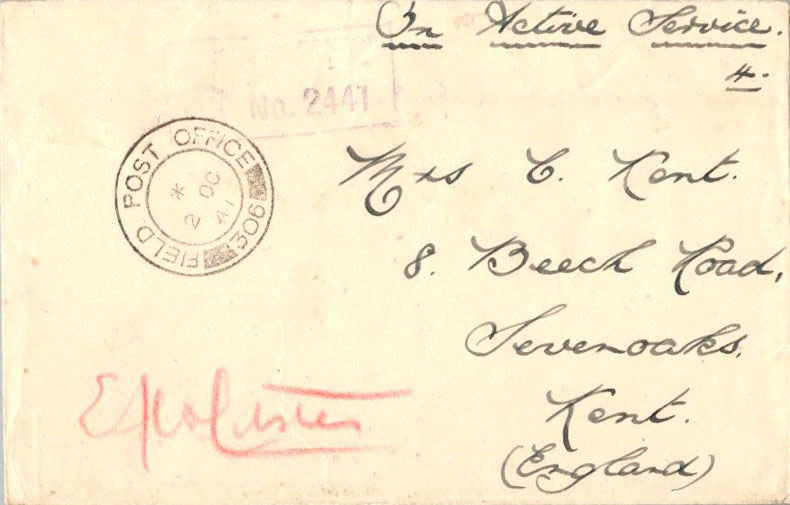 On Active Service.
4.
No. 2441
FIELD POST OFFICE
306
*
2 OC
41
Mrs C. Kent.
8. Beech Road,
Sevenoaks.
Kent.
(England)